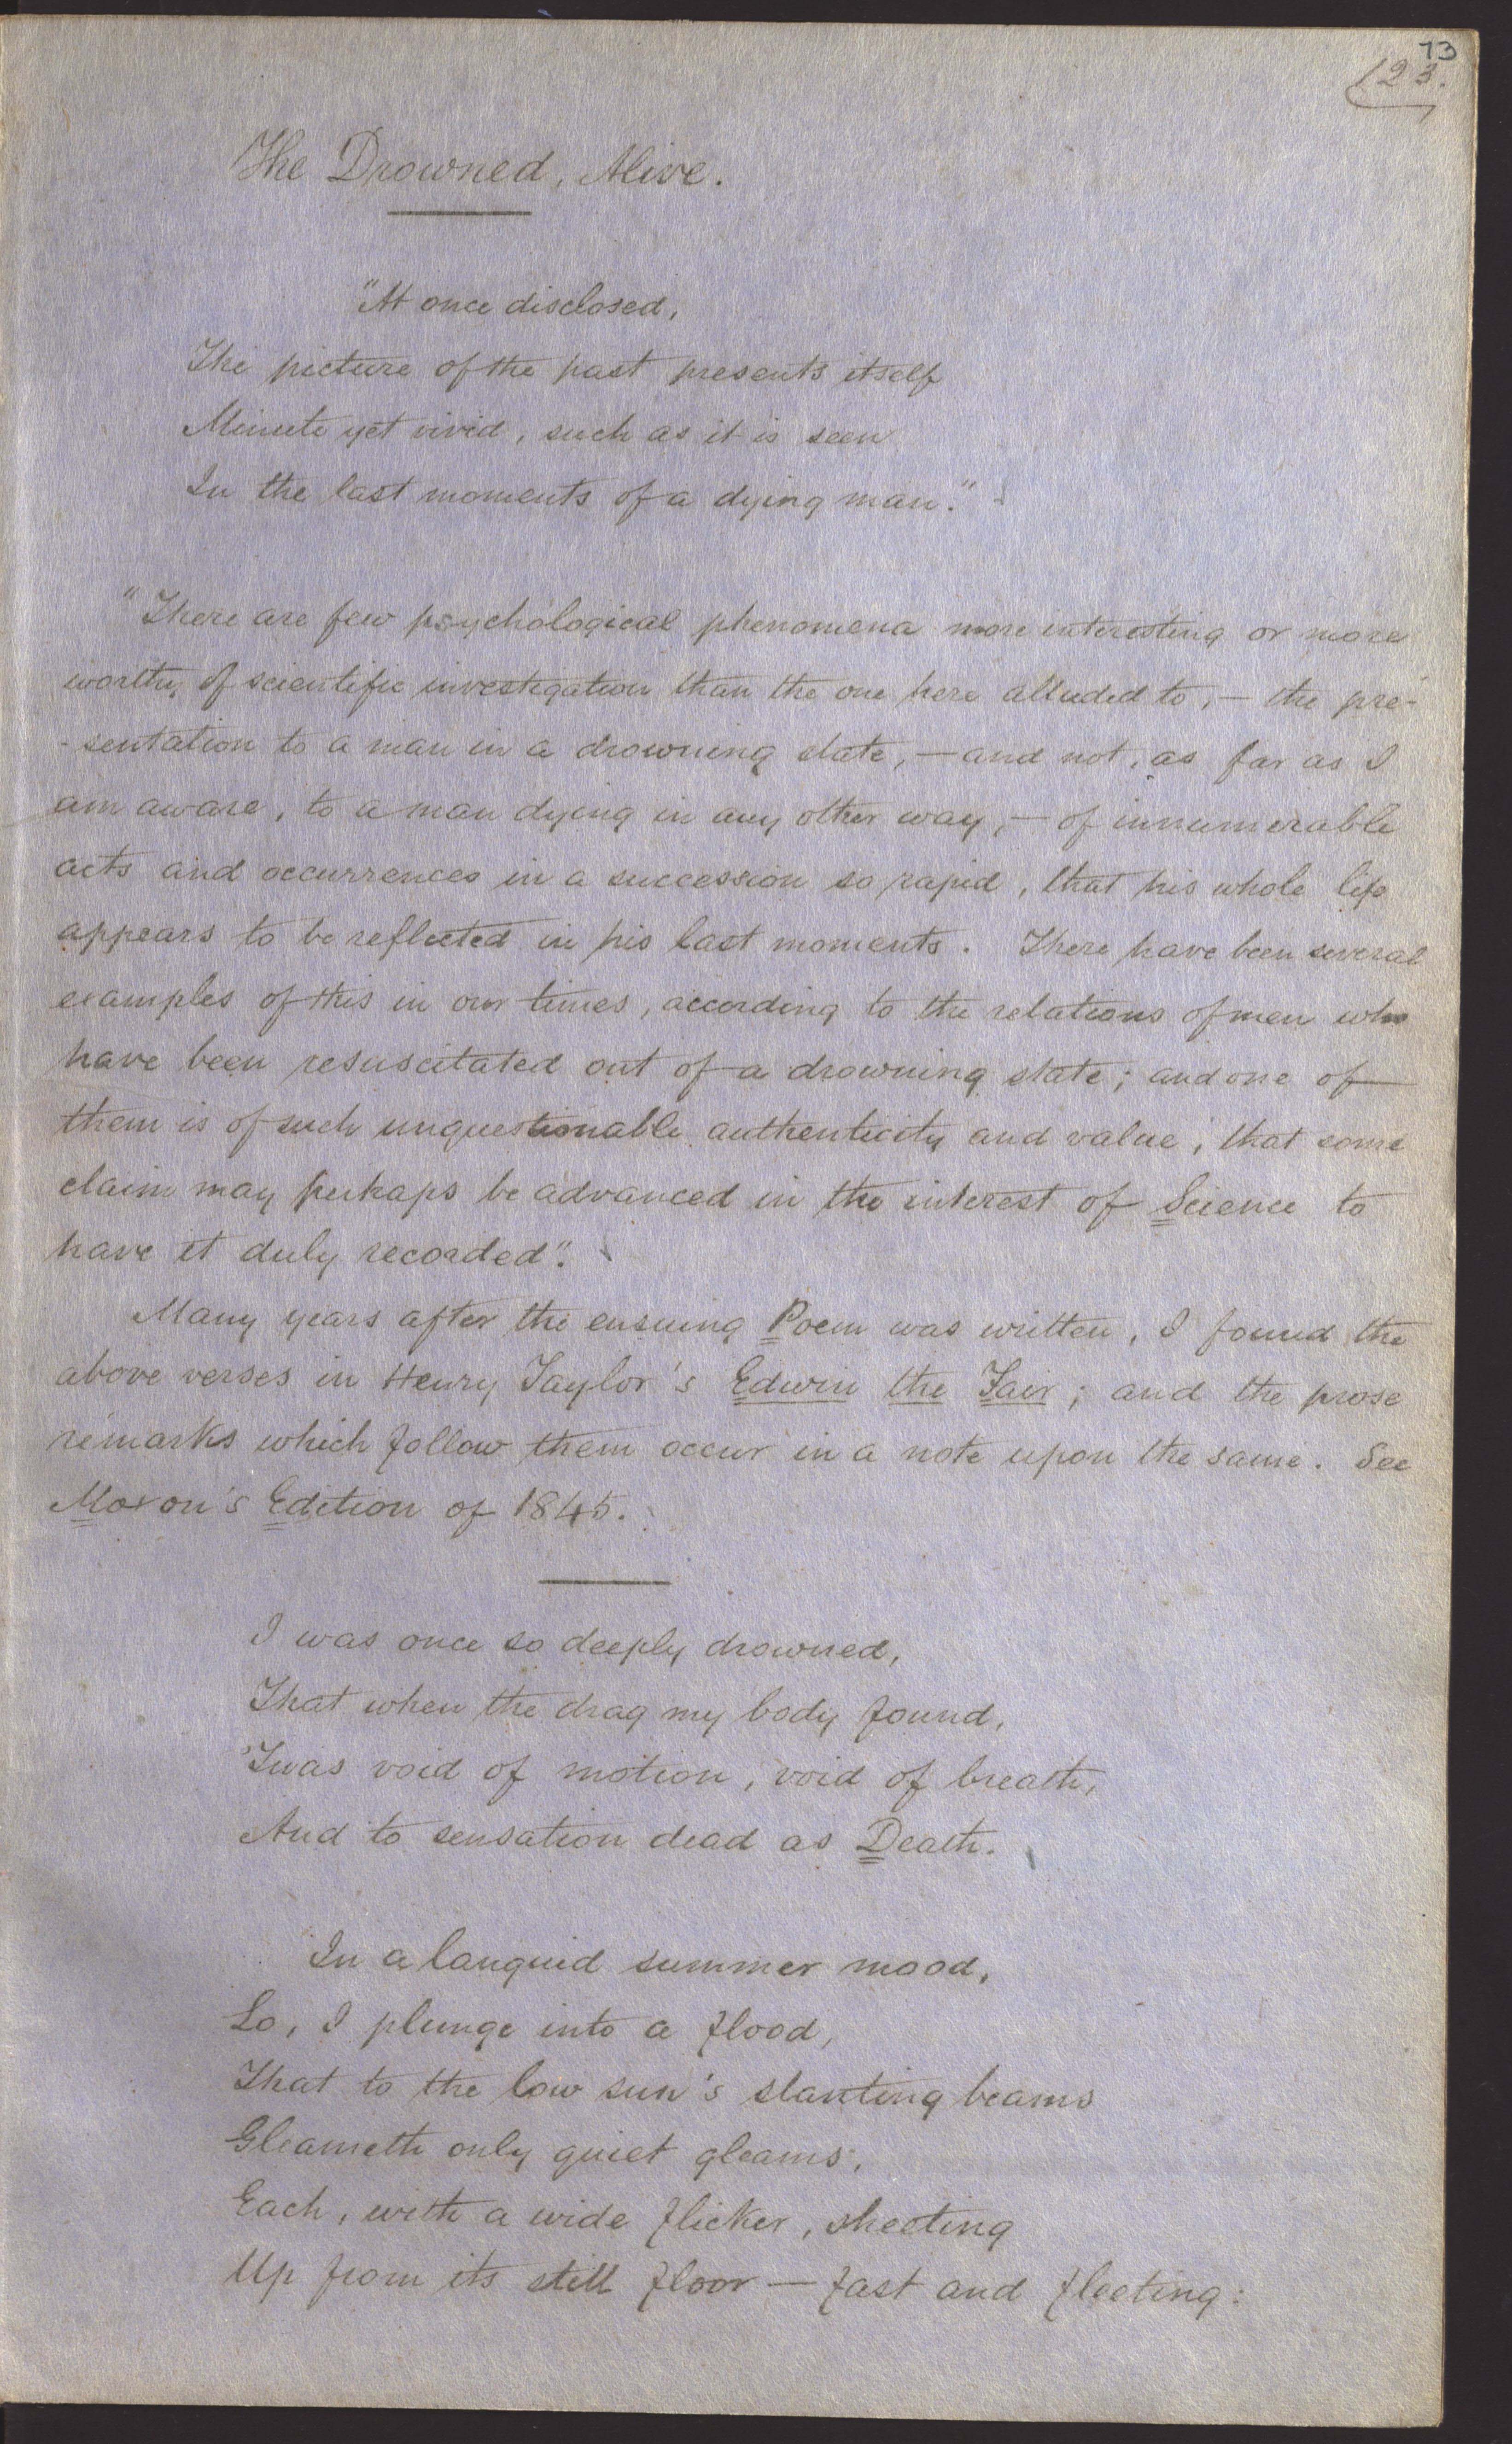 73
123.
The Drowned, Alive.
"At once disclosed,
The picture of the past presents itself
Minute yet vivid, such as it is seen
In the last moments of a dying man."
"There are few psychological phenomena more interesting or more
worthy of scientific investigation than the one here alluded to, — the pre-
-sentation to a man in a drowning state, — and not, as far as I
am aware, to a man dying in any other way, — of innumerable
acts and occurrences in a succession so rapid, that his whole life
appears to be reflected in his last moments. There have been several
examples of this in our times, according to the relations of men who
have been resuscitated out of a drowning state; and one of
them is of such unquestionable authenticity and value, that some
claim may perhaps be advanced in the interest of Science to
have it duly recorded".
Many years after the ensuing Poem was written, I found the
above verses in Henry Taylor's Edwin the Fair; and the prose
remarks which follow them occur in a note upon the same. See
Moxon's Edition of 1845.
I was once so deeply drowned,
That when the drag my body found,
'Twas void of motion, void of breath,
And to sensation dead as Death.
In a languid summer mood,
Lo, I plunge into a flood,
That to the low sun's slanting beams
Gleameth only quiet gleams,
Each, with a wide flicker, sheeting
Up from its still floor — fast and fleeting: